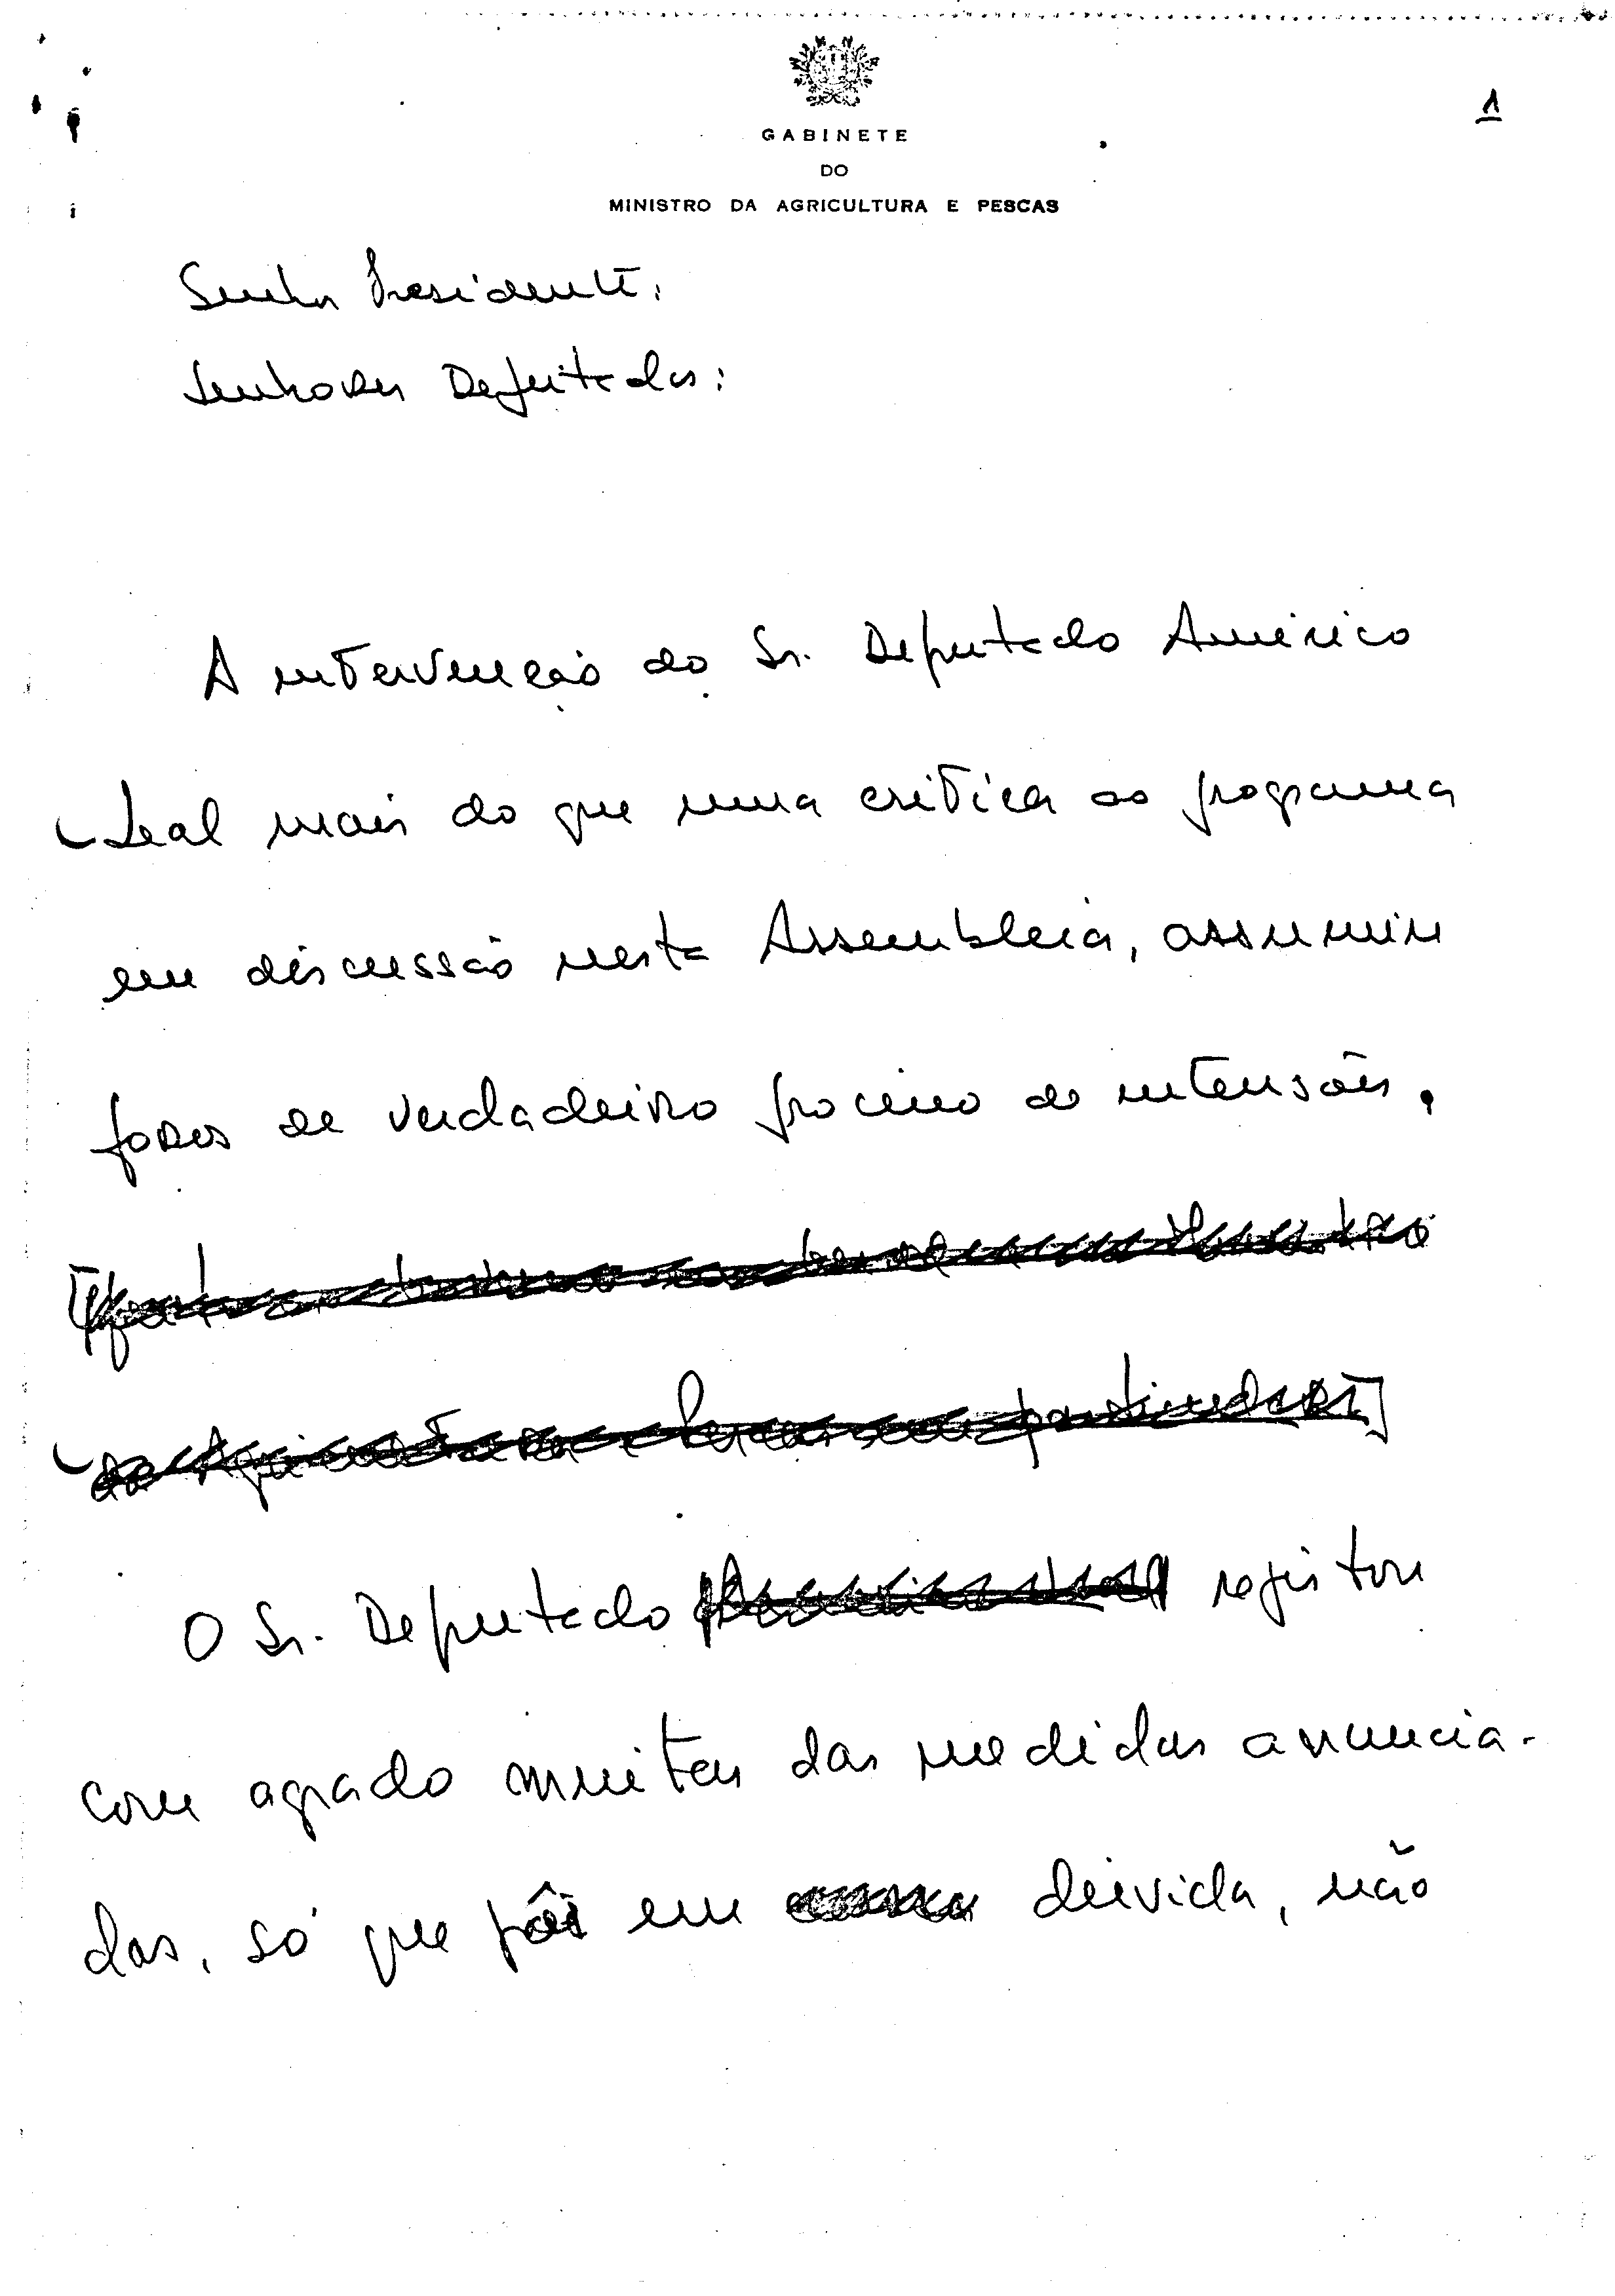 1
GABINETE
DO
MINISTRO DA AGRICULTURA E PESCAS
Senhor Presidente:
Senhores Deputados:
A intervenção do Sr. Deputado Américo
Leal mais do que uma crítica ao programa
em discussão nesta Assembleia, assumiu
foros de verdadeiro processo de intensões.
O Sr. Deputado registou
com agrado muitas das medidas anuncia-
das, só que pôs em dúvida, não